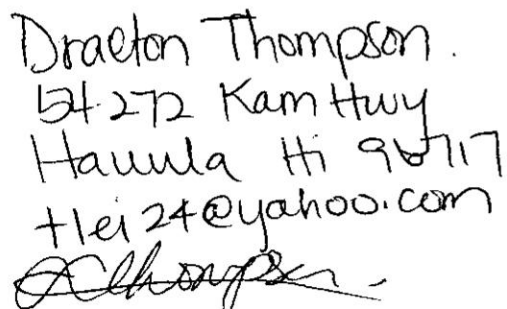 Draeton Thompson.
54.272 Kam Hwy
Hauula Hi 96717
tlei24@yahoo.com
Thompson